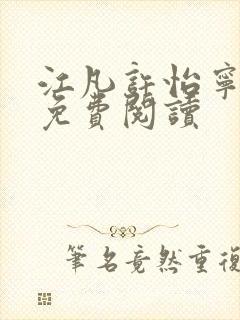 江凡許怡寧
免費閱讀
筆名竟然重復